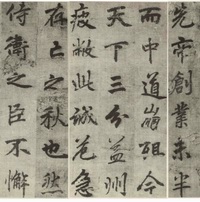 先帝創業未半
而中道崩殂今
天下三分益州
疲敝此誠危急
存亡之秋也然
侍衛之臣不懈